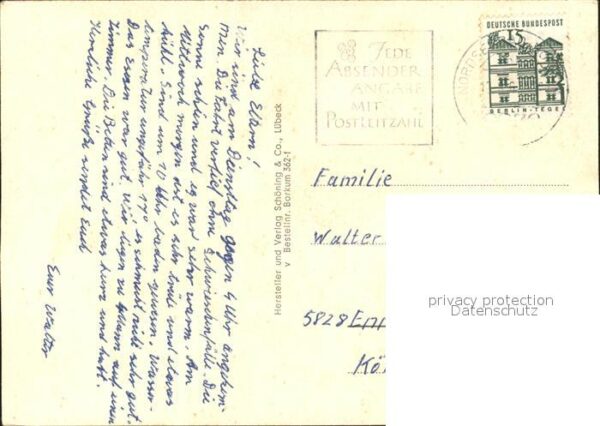 Liebe Eltern!
Wir sind am Dienstag gegen 4 Uhr angekom-
men. Die Fahrt verlief ohne Schwierichkeitfälle. Die
Sonne schien und es war sehr warm. Am
Mittwoch morgen ist es sehr trüb und etwas
kühl. Sind um 10 Uhr baden gewesen. Wasser-
temperatur ungefähr 17° es schmeckt nicht sehr gut.
Das Essen war gut. Wir liegen zu auf einen
Zimmer. Die Betten sind etwas kurz und hart.
Herzliche Grüße sendet Euch
Euer Walter
Hersteller und Verlag Schöning & Co., Lübeck
v Bestellnr. Borkum 362-f
JEDE
ABSENDER
ANGABE
MIT
POSTLEITZAHL
NORDSEE
DEUTSCHE BUNDESPOST
15
BERLIN-TEGEL
Familie
Walter
5828 Enn
Köl
privacy protection
Datenschutz